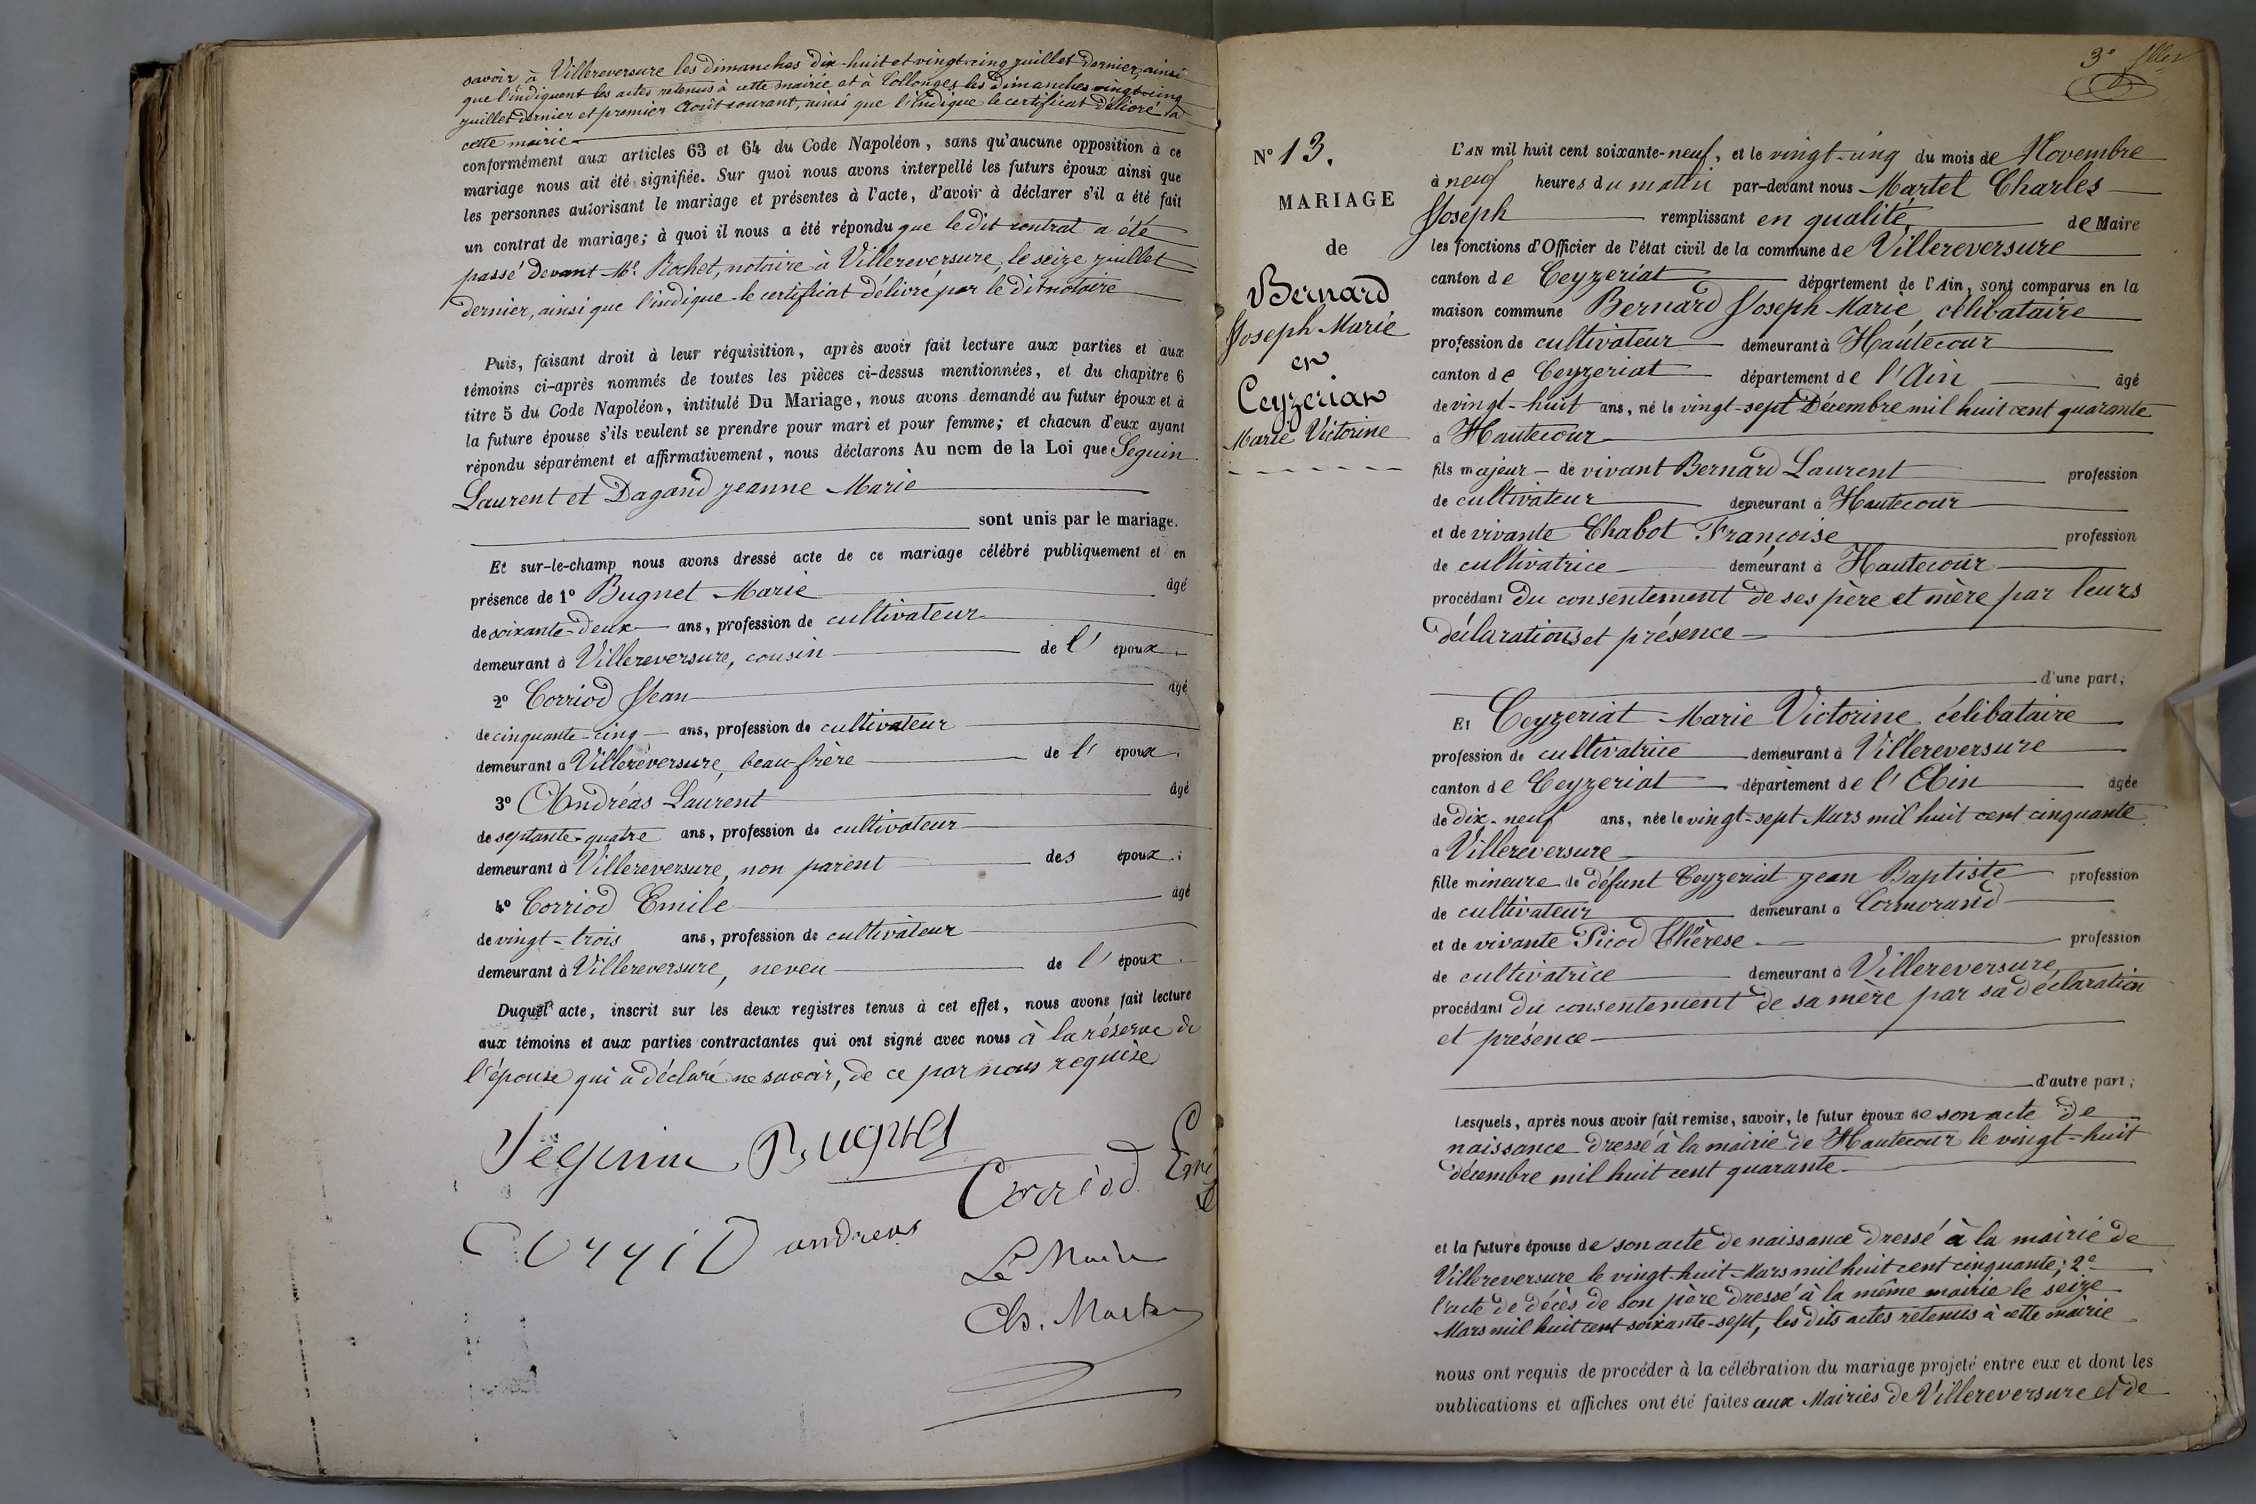 savoir à Villereversure les dimanches dix-huit et vingt-cinq juillet dernier, ainsi
que l'indiquent les actes retenus à cette mairie et à Collonges les dimanches vingt-cinq
juillet dernier et premier Août courant, ainsi que l'indique le certificat délivré à
cette mairie
conformément aux articles 63 et 64 du Code Napoléon, sans qu'aucune opposition à ce
mariage nous ait été signifiée. Sur quoi nous avons interpellé les futurs époux ainsi que
les personnes autorisant le mariage et présentes à l'acte, d'avoir à déclarer s'il a été fait
un contrat de mariage; à quoi il nous a été répondu que le dit contrat a été
passé devant Me. Rochet, notaire à Villereversure, le seize juillet
dernier, ainsi que l'indique le certificat délivré par le dit notaire
Puis, faisant droit à leur réquisition, après avoir fait lecture aux parties et aux
témoins ci-après nommés de toutes les pièces ci-dessus mentionnées, et du chapitre 6
titre 5 du Code Napoléon, intitulé Du Mariage, nous avons demandé au futur époux et à
la future épouse s'ils veulent se prendre pour mari et pour femme; et chacun d'eux ayant
répondu séparément et affirmativement, nous déclarons Au nom de la Loi que Seguin
Laurent et Dagand jeanne Marie
sont unis par le mariage.
Et sur-le-champ nous avons dressé acte de ce mariage célébré publiquement et en
présence de 1º Bugnet Marie âgé
de soixante-deux ans, profession de cultivateur
demeurant à Villereversure, cousin de l' époux.
2º Corriod Jean âgé
de cinquante-cinq ans, profession de cultivateur
demeurant à Villereversure, beau-frère de l' époux.
3º Andréas Laurent âgé
de septante-quatre ans, profession de cultivateur
demeurant à Villereversure, non parent des époux.;
4º Corriod Emile âgé
de vingt-trois ans, profession de cultivateur
demeurant à Villereversure, neveu de l' époux.
Duquel acte, inscrit sur les deux registres tenus à cet effet, nous avons fait lecture
aux témoins et aux parties contractantes qui ont signé avec nous à la réserve de
l'épouse qui a déclaré ne savoir, de ce par nous requise
Seguin Bugnet
Corriod
Corriod andreas
Le Maire
Ch. Martel
3e
Nº 13.
MARIAGE
de
Bernard
Joseph Marie
et
Ceyzeriat
Marie Victorine
L'AN mil huit cent soixante-neuf, et le vingt-cinq du mois de Novembre
à neuf heures du matin par-devant nous Martel Charles
Joseph remplissant en qualité de Maire
les fonctions d'Officier de l'état civil de la commune de Villereversure
canton de Ceyzeriat département de l'Ain, sont comparus en la
maison commune Bernard Joseph Marie, célibataire
profession de cultivateur demeurant à Hautecour
canton de Ceyzeriat département de l'Ain âgé
de vingt-huit ans, né le vingt-sept Décembre mil huit cent quarante
à Hautecour
fils majeur de vivant Bernard Laurent profession
de cultivateur demeurant à Hautecour
et de vivante Chabot Françoise profession
de cultivatrice demeurant à Hautecour
procédant du consentement de ses père et mère par leurs
déclarations et présence
d'une part;
Et Ceyzeriat Marie Victorine célibataire
profession de cultivatrice demeurant à Villereversure
canton de Ceyzeriat département de l'Ain âgée
de dix-neuf ans, née le vingt-sept Mars mil huit cent cinquante
à Villereversure
fille mineure de défunt Ceyzeriat jean Baptiste profession
de cultivateur demeurant à Cormorand
et de vivante Picod Thérese profession
de cultivatrice demeurant à Villereversure
procédant du consentement de sa mère par sa déclaration
et présence
d'autre part;
Lesquels, après nous avoir fait remise, savoir, le futur époux de son acte de
naissance dressé à la mairie de Hautecour le vingt-huit
décembre mil huit cent quarante
et la future épouse de son acte de naissance dressé à la mairie de
Villereversure le vingt-huit Mars mil huit cent cinquante; 2º
l'acte de décès de son père dressé à la même mairie le seize
Mars mil huit cent soixante-sept, les dits actes retenus à cette mairie
nous ont requis de procéder à la célébration du mariage projeté entre eux et dont les
publications et affiches ont été faites aux Mairies de Villereversure et de